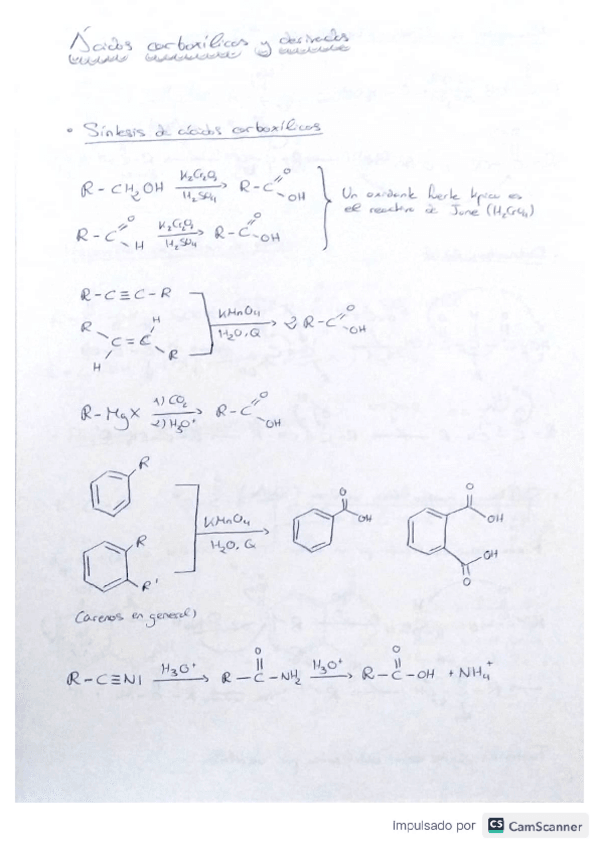 Ácidos carboxílicos y derivados
• Síntesis de ácidos carboxílicos
R-CH₂OH K₂Cr₂O₇ H₂SO₄ → R-C O OH
R-C O H K₂Cr₂O₇ H₂SO₄ → R-C O OH
Un oxidante fuerte típico es
el reactivo de Jone (H₂CrO₄)
R-C≡C-R
R H C=C H R
KMnO₄ H₂O, Q → 2 R-C O OH
R-MgX 1) CO₂ 2) H₃O⁺ → R-C O OH
R
R R'
KMnO₄ H₂O, Q → O OH O OH OH O
(arenos en general)
R-C≡N H₃O⁺ → R-C(=O)-NH₂ H₃O⁺ → R-C(=O)-OH + NH₄⁺
Impulsado por CS CamScanner